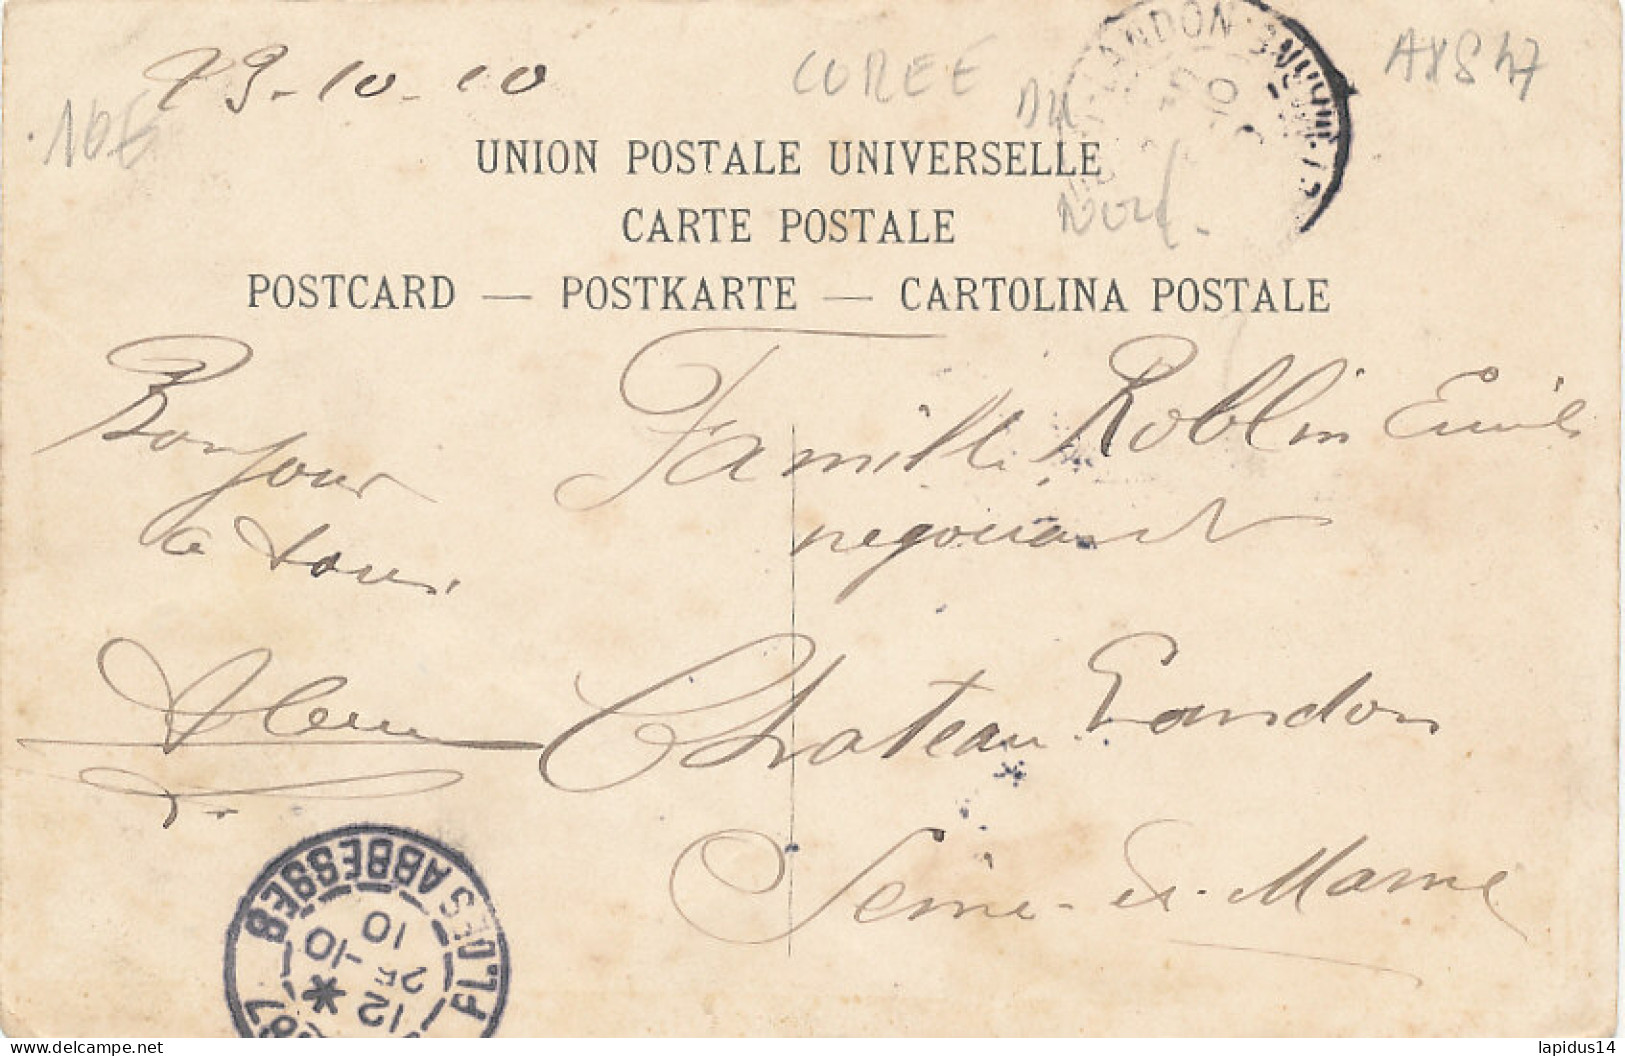 10€
23-10-10
COREE
DU
Nord
AXS 47
LANDON
UNION POSTALE UNIVERSELLE
CARTE POSTALE
POSTCARD — POSTKARTE — CARTOLINA POSTALE
Bonjour
a tous
Famille Roblin Emile
negociant
Chateau Landon
Seine-et-Marne
87 PL. DES ABBESSES 8
12 *
25 -10
10
lapidus14